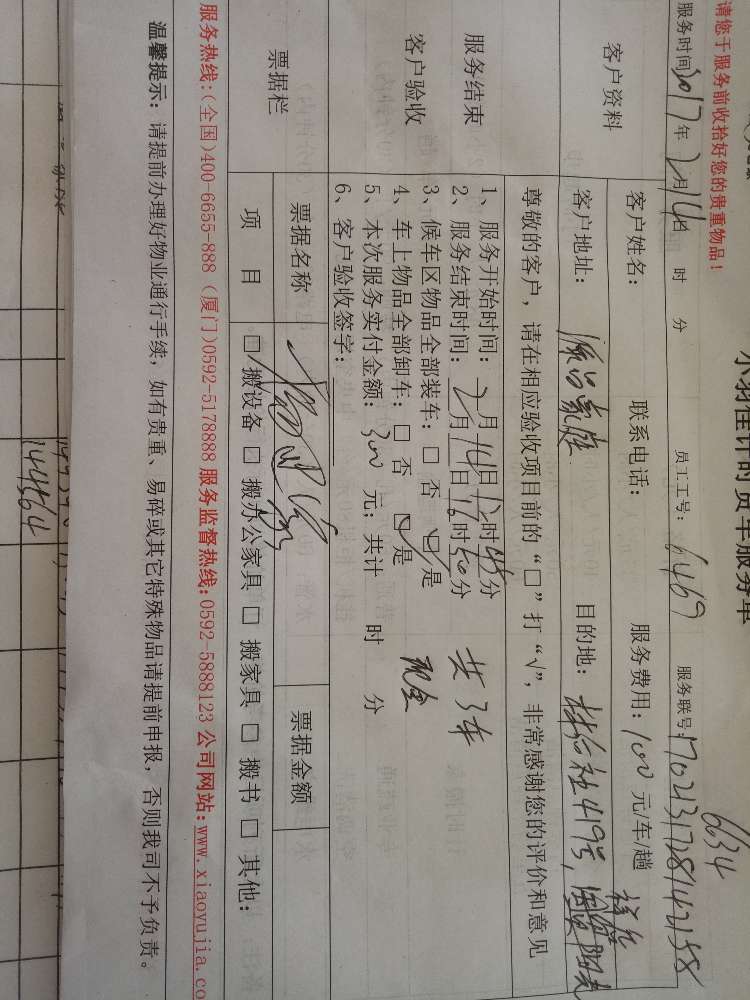 小羽佳计时货车服务单
请您于服务前收拾好您的贵重物品!
6634
服务时间2017年2月14日 时 分 员工工号: 6469 服务联号:1702131728142158
客户资料 客户姓名: 联系电话: 服务费用:100元/车/趟
客户地址: 目的地: 社419号,
尊敬的客户,请在相应验收项目前的“□”打“√”,非常感谢您的评价和意见
服务结束
客户验收
1、服务开始时间:2月14日12时45分 共3车
2、服务结束时间:2月14日16时50分
3、候车区物品全部装车:□ 否 ☑ 是 现金
4、车上物品全部卸车:□ 否 ☑ 是
5、本次服务实付金额:300元;共计 时 分
6、客户验收签字:
票据栏 票据名称 票据金额
项 目 □ 搬设备 □ 搬办公家具 □ 搬家具 □ 搬书 □ 其他:
服务热线:(全国)400-6655-888 (厦门)0592-5178888 服务监督热线:0592-5888123 公司网站:www.xiaoyujia.co
温馨提示:请提前办理好物业通行手续,如有贵重、易碎或其它特殊物品请提前申报,否则我司不予负责。
144564